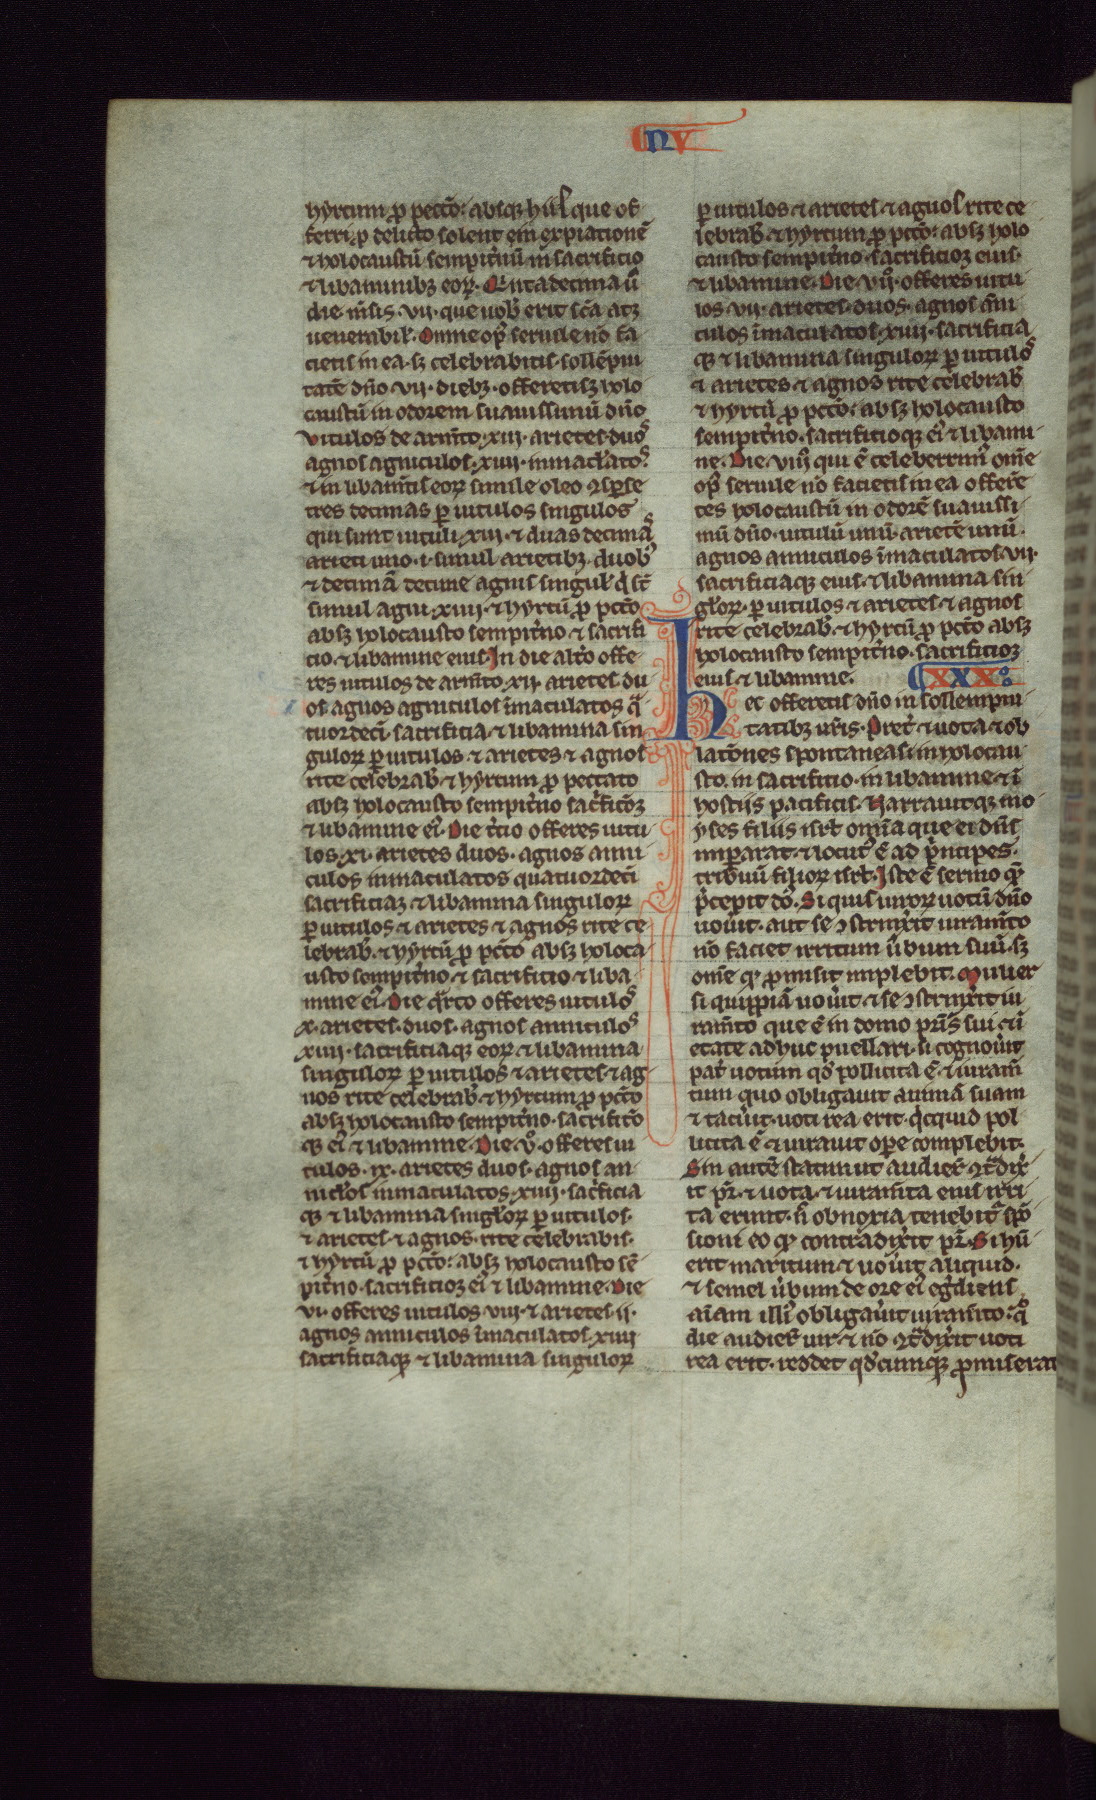 NV
hyrcum ꝓ pecc̄o: absqꝫ hiis que of
ferri ꝓ delicto solent eīn expiationē
⁊ holocaustū sempit̄nū in sacrificio
⁊ libaminibꝫ eoꝝ. Quintadecima ū
die m̄sis. vii. que uob̾ erit sc̄a atꝫ
uenerabil̾. Omne op̾ seruile nō fa
cietis in ea. sꝫ celebrabitis sollēpni
tatē dn̄o vii. diebꝫ. offeretisꝫ holo
caustū in odorem suauissimū dn̄o
vitulos de arm̄to. xiii. arietes duos
agnos agniculos. xiiii. inmac̄latos.
⁊ in libam̄tis eoꝝ simile oleo ꝯsꝑse
tres decimas ꝑ uitulos singulos
qui sunt uituli. xiii. ⁊ duas decimas
arieti uno. i. simul arietibꝫ. duob̾
⁊ decimā decime agnis singul̾ q̇ st̄
simul agni. xiiii. ⁊ hyrcū ꝓ pcc̄o
absꝫ holocausto sempit̄no ⁊ sacrifi
cio. ⁊ libamine eius. In die alt̄o offe
res uitulos de arm̄to. xii. arietes du
os agnos agniculos īmaculatos qͣ
tuordecī sacrificia. ⁊ libamina sin
guloꝝ ꝑ uitulos ⁊ arietes ⁊ agnos
rite celebrab̾. ⁊ hyrcum ꝓ peccato
absꝫ holocausto sempit̄no sac̄ficioꝫ
⁊ libamine ei̾. Die t̄cio offeres uitu
los. xi. arietes duos. agnos anni
culos inmaculatos quatuordecī
sacrificiaꝫ ⁊ libamina singuloꝝ
ꝑ uitulos ⁊ arietes ⁊ agnos rite ce
lebrab̾. ⁊ hyrcū ꝓ pcc̄o absꝫ holoca
usto sempit̄no. ⁊ sacrificio ⁊ liba
mine ei̾. Die qͣrto offeres uitulos
x. arietes. duos. agnos anniculos
xiiii. sacrificiaqꝫ eoꝝ ⁊ libamina
singuloꝝ ꝑ uitulos ⁊ arietes. ⁊ ag
nos rite celebrab̾. ⁊ hyrcum ꝓ pcc̄o
absꝫ holocausto sempit̄no. sacrific̄o
qꝫ ei̾ ⁊ libamine. Die. vͦ. offeres ui
tulos. ix. arietes duos. agnos an
nic̄los inmaculatos. xiiii. sac̄ficia
qꝫ ⁊ libamina singl̄oꝝ ꝑ uitulos.
⁊ arietes. ⁊ agnos. rite celebrabis.
⁊ hyrcū ꝓ pcc̄o: absꝫ holocausto sē
pit̄no. sacrificioꝫ ei̾ ⁊ libamine. Die
vi. offeres uitulos viii. ⁊ arietes. ii.
agnos anniculos īmaculatos. xiiii
sacrificiaqꝫ ⁊ libamina singuloꝝ
ꝑ uitulos ⁊ arietes ⁊ agnos rite ce
lebrab̾. ⁊ hyrcum ꝓ pcc̄o: absꝫ holo
causto sempit̄no. sacrificioꝫ eius.
⁊ libamine. Die. viiͦ. offeres uitu
los. vii. arietes. duos. agnos āni
culos īmaculatos. xiiii. sacrificia
qꝫ ⁊ libamina singuloꝝ ꝑ uitulos
⁊ arietes ⁊ agnos rite celebrab̾
⁊ hyrcū ꝓ pcc̄o: absꝫ holocausto
sempit̄no. sacrificioqꝫ ei̾ ⁊ libami
ne. Die. viiiͦ qui ē celeberrim̾ om̄e
op̾ seruile nō facietis in ea offerē
tes holocaustū in odorē suauissi
mū dn̄o. uitulū unū. arietē unū.
agnos anniculos īmaculatos. vii.
sacrificiaqꝫ eius. ⁊ libamina sin
gl̄oꝝ. ꝑ uitulos ⁊ arietes. ⁊ agnos
rite celebrab̾. ⁊ hyrcū ꝓ pcc̄o absꝫ
holocausto sempit̄no. sacrificioꝫ
eius ⁊ libamine. XXXͦ.
Hec offeretis dn̄o in sollempni
tatibꝫ ur̄is. Pret̄ ⁊ uota ⁊ ob
lat̄ones spontaneas in holocau
sto. in sacrificio. in libamine ⁊ ī
hostiis pacificis. Narrauitqꝫ mo
yses filiis isrl̄ om̄ia que ei dn̄s
imꝑarat. ⁊ locut̾ ē ad p̄ncipes
tribuū filioꝝ isrl̄. Iste ē sermo qͤ
p̄cepit dn̄s. Si quis uiroꝝ uotū dn̄o
uou̾it. aut se ꝯstrinx̾it iuram̄to
nō faciet irritum ūbum suū. sꝫ
om̄e qͩ promisit implebit. Mulier
si quippiā uou̾it ⁊ se ꝯstrinx̾it iu
ram̄to que ē in domo pr̄is sui ⁊ ī
etate adhuc puellari. si cognou̾it
pat̄ uotum qd̾ pollicita ē. ⁊ iuram̄
tum quo obligauit animā suam
⁊ tacu̾it. uoti rea erit. q̇cquid pol
licita ē ⁊ iurauit oꝑe complebit.
Sin autē statim ut audier̾ ꝯͣdix̾
it pr̄. ⁊ uota. ⁊ iuram̄ta eius irri
ta erunt. n̄ obnoxia tenebit̄ spō
sioni eo qͩ contradix̾it pr̄. Si hū
erit maritum ⁊ uou̾it aliquid.
⁊ semel ūbum de ore ei̾ eg̾diens
aīam illi̾ obligau̾it iuram̄to: qͦ
die audier̾ uir. ⁊ nō ꝯͣdix̾it uoti
rea erit. reddet qd̾cumqꝫ promiserat